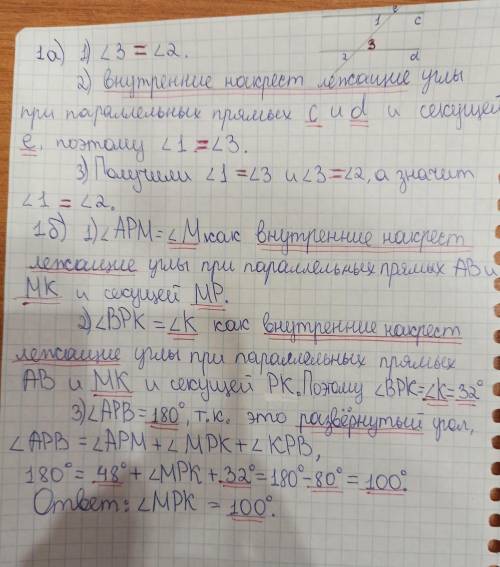 e
1 c
1а) 1) ∠3 = ∠2.
3
2 d
2) внутренние накрест лежащие углы
при параллельных прямых c и d и секущей
e, поэтому ∠1 = ∠3.
3) Получили ∠1 = ∠3 и ∠3 = ∠2, а значит
∠1 = ∠2.
1б) 1) ∠APM = ∠M как внутренние накрест
лежащие углы при параллельных прямых AB и
MK и секущей MP.
2) ∠BPK = ∠K как внутренние накрест
лежащие углы при параллельных прямых
AB и MK и секущей PK. Поэтому ∠BPK = ∠K = 32°
3) ∠APB = 180°, т.к. это развёрнутый угол,
∠APB = ∠APM + ∠MPK + ∠KPB,
180° = 48° + ∠MPK + 32° = 180° - 80° = 100°.
Ответ: ∠MPK = 100°.